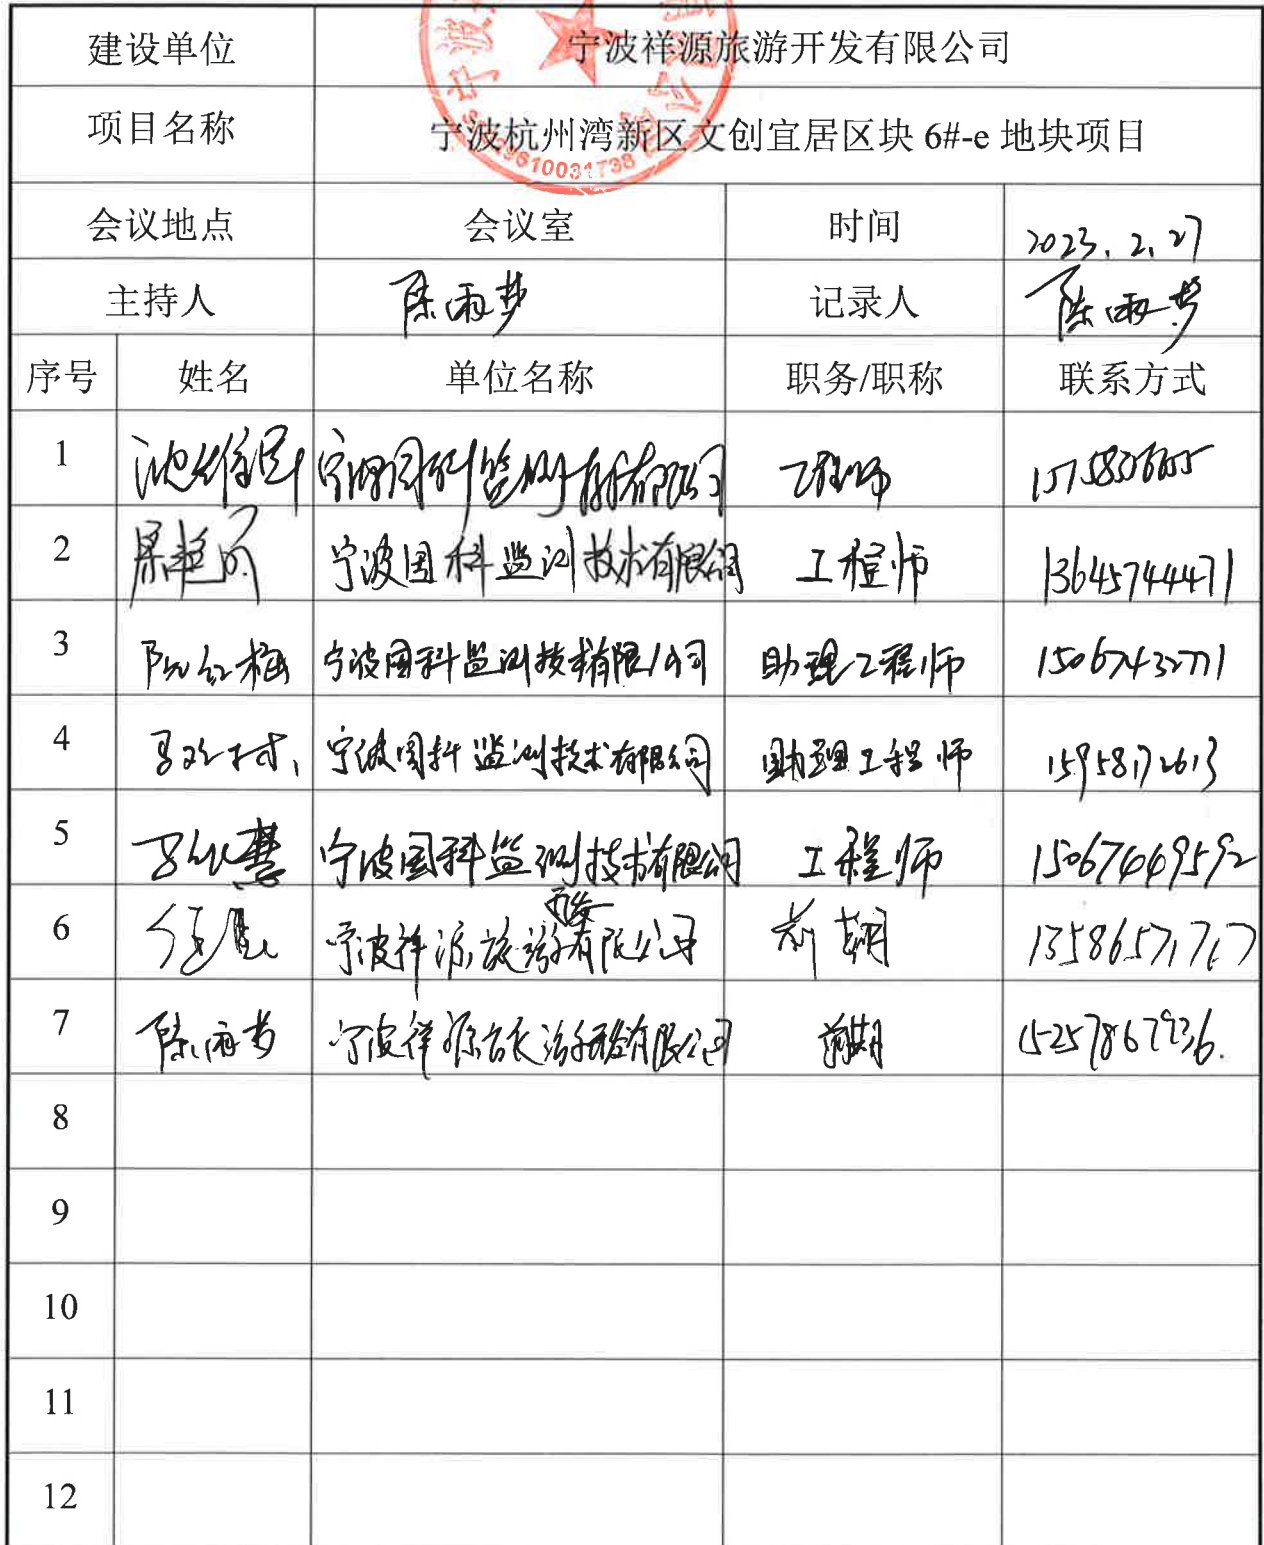 建设单位 宁波祥源旅游开发有限公司
项目名称 宁波杭州湾新区文创宜居区块 6#-e 地块项目
会议地点 会议室 时间 2023.2.27
主持人 陈雨梦 记录人 陈雨梦
序号 姓名 单位名称 职务/职称 联系方式
1 宁波国科监测技术有限公司 工程师
2 宁波国科监测技术有限公司 工程师 13645744471
3 阮红梅 宁波国科监测技术有限公司 助理工程师 15067432771
4 宁波国科监测技术有限公司 助理工程师 15958172613
5 宁波国科监测技术有限公司 工程师 15067449592
6 宁波祥源旅游开发有限公司 前期 13586571717
7 陈雨梦 宁波祥源旅游开发有限公司 前期 15257867936.
8
9
10
11
12